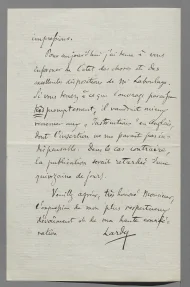 improviser.
Pour aujourd'hui j'ai tenu à vous
informer de l'état des choses et des
excellentes dispositions de Mr Laboulaye.
Si vous tenez à ce que l'ouvrage paraisse
très promptement, il vaudrait mieux
renoncer aux "Instructions" en Anglais,
dont l'insertion ne me paraît pas in-
dispensable. Dans le cas contraire,
la publication serait retardée d'une
quinzaine de jours.
Veuillez agréer, très honoré Monsieur,
l'expression de mon plus respectueux
dévouement et de ma haute considé-
ration
Lardy